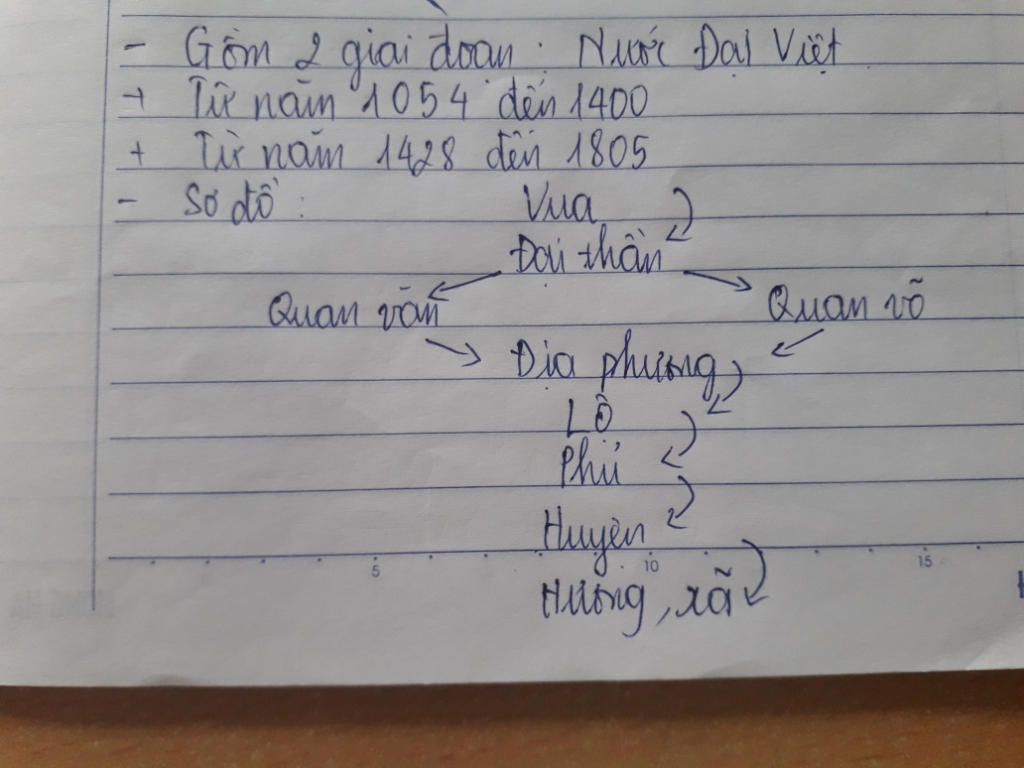 - Gồm 2 giai đoạn: Nước Đại Việt
+ Từ năm 1054 đến 1400
+ Từ năm 1428 đến 1805
- Sơ đồ: Vua
Đại thần
Quan văn Quan võ
Địa phương
Lộ
Phủ
Huyện
Hương, xã
5 10 15